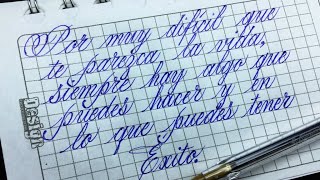 Por muy difícil que
te parezca la vida,
siempre hay algo que
puedes hacer y en
lo que puedes tener
Exito.
Design